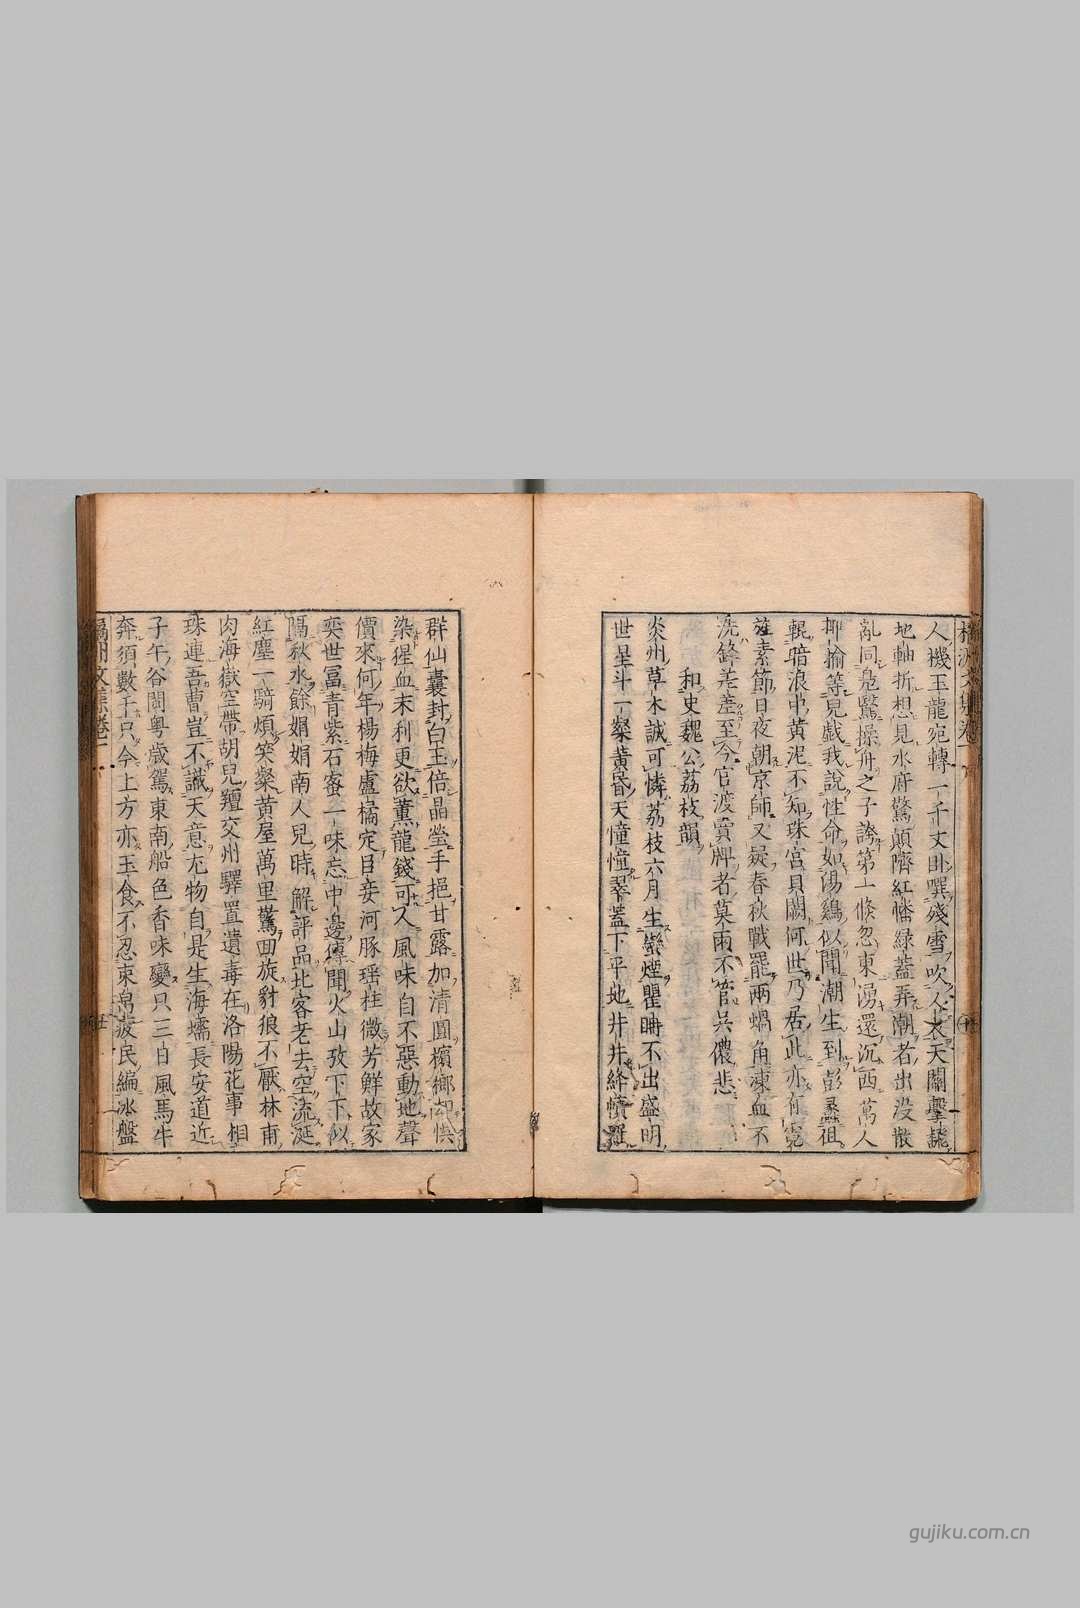 人機玉龍宛轉一千丈卧噀殘雪吹人衣天關擊撼
地軸折想見水府驚顛隮紅幡緑蓋弄潮者出没散
亂同鳧鷖操舟之子誇第一倏忽東湧還沉西萬人
揶揄等兒戯我說性命如湯鷄似聞潮生到彭蠡徂
輥暗浪中黄泥不知珠宫貝闕何世乃居此亦有霓
旌素節日夜朝京師又疑春秋戰罷兩蝸角凍血不
洗鋒差差至今官渡賣牌者莫雨不管呉儂悲
和史魏公荔枝韻
炎州草木誠可憐荔枝六月生蠻煙瞿冊不出盛明
世星斗一一粲黄昏天憧憧翠蓋下平地井井絳幘羅
橘洲文集卷一
十五
群仙囊封白玉倍晶瑩手挹甘露加清圓檳榔却快
染猩血末利更欲薫龍錢可人風味自不惡動地聲
價來何年楊梅盧橘定目妾河豚瑶柱微芳鮮故家
奕世冨青紫石蜜一味忘中邊傳聞火山孜下下似
隔秋水餘娟娟南人兒時解評品北客老去空流涎
紅塵一騎煩笑粲黄屋萬里驚回旋豺狼不厭林甫
肉海嶽空帶胡兒羶交州驛置遺毒在洛陽花事相
珠連吾曹豈不識天意尤物自是生海壖長安道近
子午谷閩粤歳駕東南船色香味變只三日風馬牛
奔須數千只今上方亦玉食不忍束帛疲民編冰盤